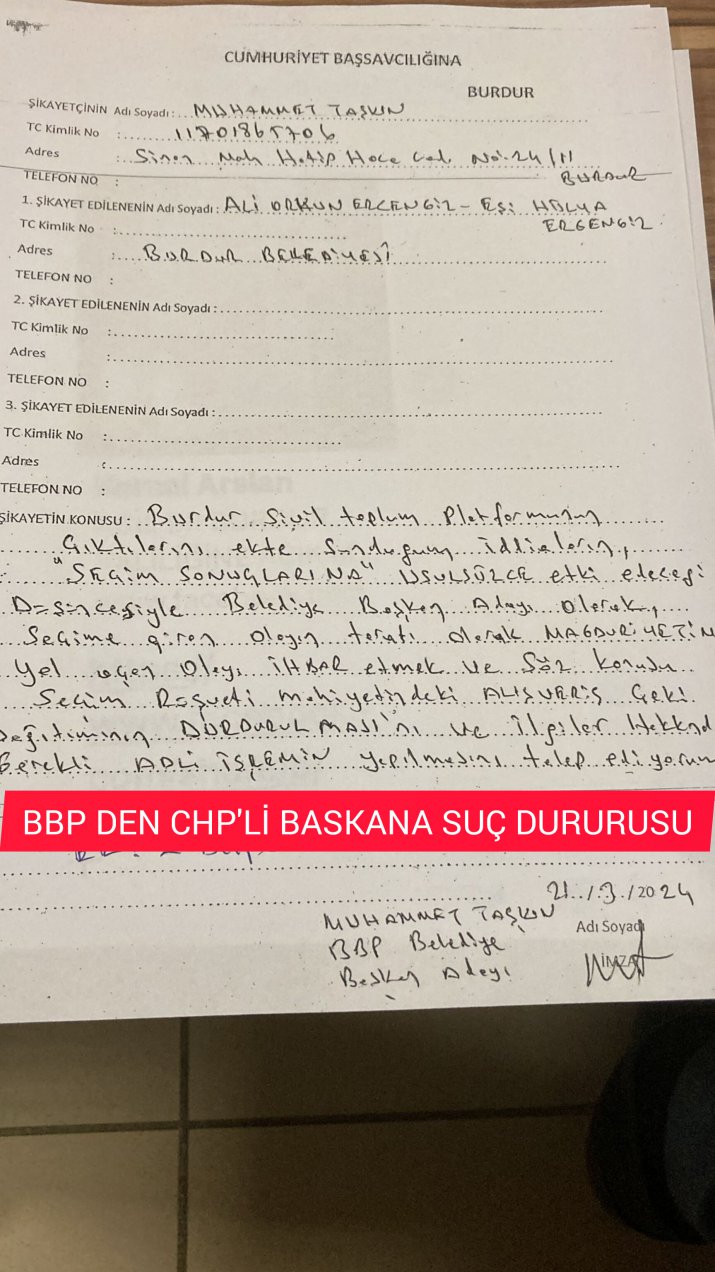 CUMHURİYET BAŞSAVCILIĞINA
BURDUR
ŞİKAYETÇİNİN Adı Soyadı : MUHAMMET TAŞKIN
TC Kimlik No :
Adres : Sinan Mah Hatip Hoca Cad. No: 24/11
BURDUR
TELEFON NO :
1. ŞİKAYET EDİLENENİN Adı Soyadı : ALİ ORKUN ERCENGİZ - EŞİ HÜLYA
ERGENGİZ
TC Kimlik No :
Adres : BURDUR BELEDİYESİ
TELEFON NO :
2. ŞİKAYET EDİLENENİN Adı Soyadı :
TC Kimlik No :
Adres :
TELEFON NO :
3. ŞİKAYET EDİLENENİN Adı Soyadı :
TC Kimlik No :
Adres :
TELEFON NO :
ŞİKAYETİN KONUSU : Burdur Sivil toplum Platformunun
Çıktılarını ekte Sunduğum iddiaların,
"SEÇİM SONUÇLARINA" USULSÜZCE etki edeceği
Düşüncesiyle Belediye Başkan Adayı Olarak,
Seçime giren Olayın tarafı olarak MAĞDURİYETİM
Yol açan Olayı İHBAR etmek ve Söz konusu
Seçim Rüşveti mahiyetindeki ALIŞVERİŞ Çeki
Dağıtımının DURDURULMASI'nı ve İlgiler Hakkınd
Gerekli ADLİ İŞLEMİN yapılmasını talep ediyorum
BBP DEN CHP'Lİ BASKANA SUÇ DURURUSU
21/3/2024
MUHAMMET TAŞKIN
Adı Soyadı
BBP Belediye
Başkan Adayı
İMZA